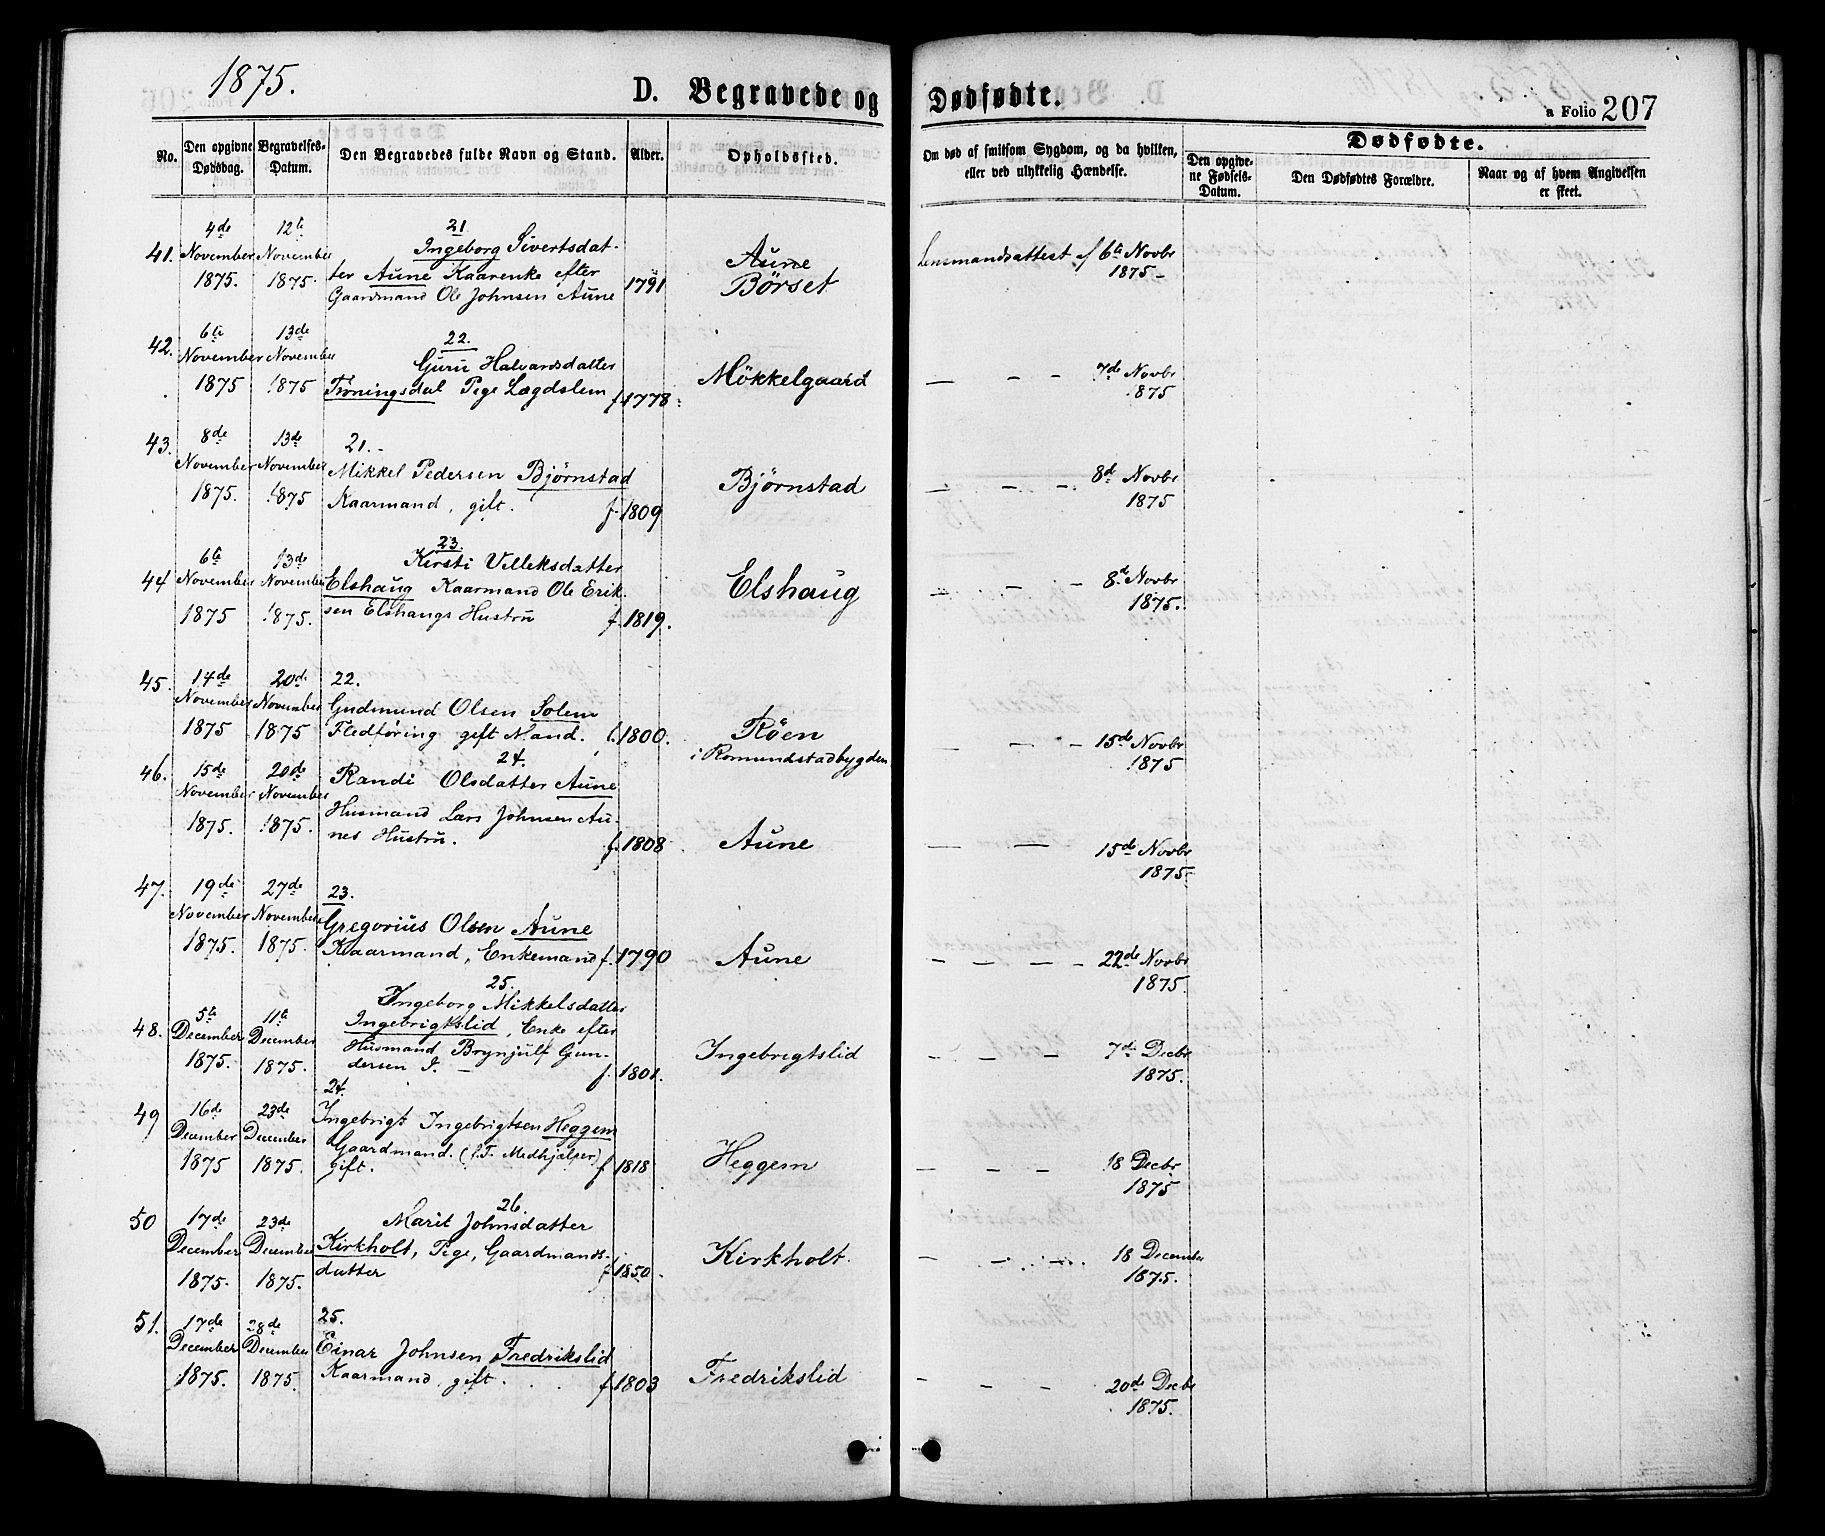 1875.
D. Begravede og Dødfødte.
a Folio 207
No.
Den opgivne Dødsdag.
Begravelses-Datum.
Den Begravedes fulde Navn og Stand.
Alder.
Opholdssted.
Om død af smitsom Sygdom, og da hvilken, eller ved ulykkelig Hændelse.
Dødfødte.
Den opgivne Fødsels-Datum.
Den Dødfødtes Forældre.
Naar og af hvem Angivelsen er skeet.
41. 4de November 1875. 12te November 1875.
21
Ingeborg Sivertsdat-
ter Aune Kaarenke efter
Gaardmand Ole Johnsen Aune
1791
Aune
Börset
Lensmandsattest af 6te Novbr
1875
42. 6te November 1875 13de November 1875
22.
Guru Halvardsdatter
Troningsdal Pige Lægdslem f. 1778
Mökkelgaard
— — — 7de Novbr
1875
43. 8de November 1875. 13de November 1875
21.
Mikkel Pedersen Bjørnstad
Kaarmand, gift. f. 1809
Bjørnstad
— — — 8de Novbr
1875
44 6te November 1875 13de November 1875.
23.
Kirsti Villeksdatter
Elshaug Kaarmand Ole Erik-
sen Elshaugs Hustru f. 1819.
Elshaug
— — — 8de Novbr
1875.
45. 14de November 1875 20de November 1875
22.
Gudmund Olsen Solem
Fledføring gift Mand. f. 1800.
Röen
i Romundstadbygden
— — — 15de Novbr
1875
46. 15de November 1875. 20de November 1875.
24.
Randi Olsdatter Aune
Husmand Lars Johnsen Au-
nes Hustru. f. 1808
Aune
— — 15de Novbr
1875
47. 19de November 1875. 27de November 1875.
23.
Gregorius Olsen Aune
Kaarmand, Enkemand f. 1790
Aune
— — — — 22de Novbr
1875.
48. 5te December 1875. 11te December 1875.
25.
Ingeborg Mikkelsdatter
Ingebrigtslid, Enke efter
Husmand Brynjulf Gun-
dersen I. f. 1801.
Ingebrigtslid
— — — 7de Decbr
1875.
49 16de December 1875 23de December 1875.
24.
Ingebrigt Ingebrigtsen Heggem
Gaardmand. (f.T. Medhjælper)
gift. f 1818
Heggem
— — — 18 Decbr
1875
50 17de December 1875. 23de December 1875.
26.
Marit Johnsdatter
Kirkholt, Pige, Gaardmands-
datter f 1850
Kirkholt.
— — 18 December
1875.
51. 17de December 1875. 28de December 1875.
25.
Einar Johnsen Fredrikslid
Kaarmand, gift. f. 1803
Fredrikslid
— — — 20de Decbr
1875.